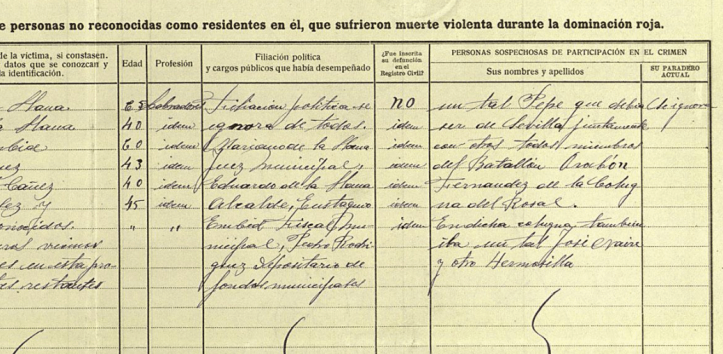 e personas no reconocidas como residentes en él, que sufrieron muerte violenta durante la dominación roja.
de la víctima, si constasen.
datos que se conozcan y
la identificación.
Edad
Profesión
Filiación política
y cargos públicos que había desempeñado
¿Fue inscrita
su defunción
en el
Registro Civil?
PERSONAS SOSPECHOSAS DE PARTICIPACIÓN EN EL CRIMEN
Sus nombres y apellidos
SU PARADERO
ACTUAL
Llana. 65 Labrador Filiación política se no un tal Pepe que debía Se ignora
Llana 40 idem ignora de todos. idem ser de Sevilla juntamente
60 idem Mariano de la Llana idem con otros todos miembros
43 idem Juez municipal, idem del Batallón
40 idem Eduardo de la Llana idem Fernandez de la Colug
y 45 idem Alcalde, Eustaquio idem na del Rosal.
" " Embid Fiscal mu- idem En dicha coluna tambien
vecinos nicipal, Pedro Rodri iba un tal José
es en esta pro- guez Depositario de y otro Hermosilla
restantes fondos municipales